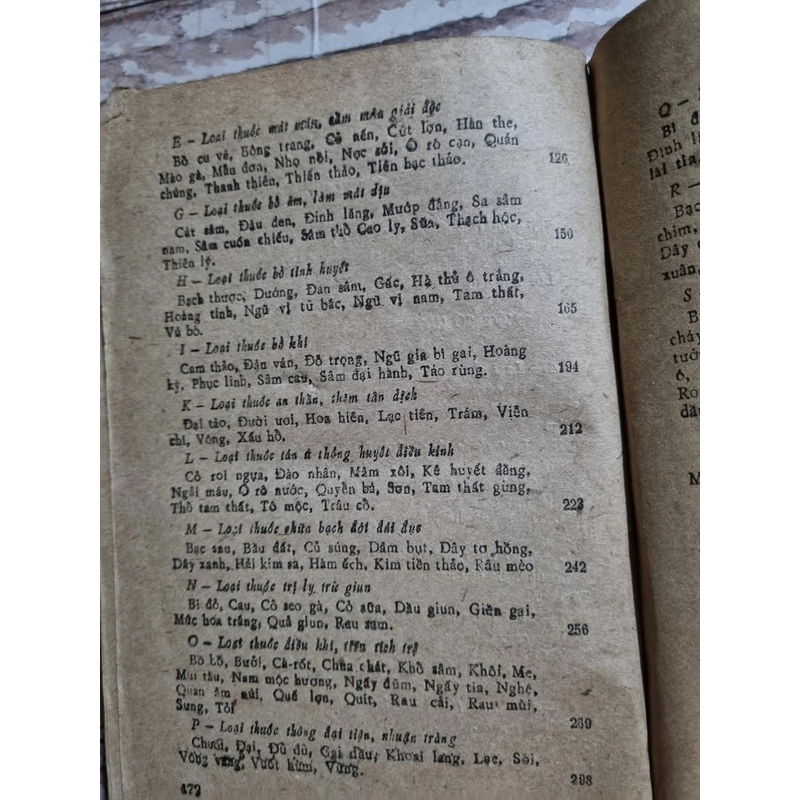 E – Loại thuốc mát máu, tiêm môn giải độc
Bồ cu vẽ, Bông trang, Cỏ nến, Cứt lợn, Hàn the,
Mào gà, Mẫu đơn, Nhọ nồi, Nọc sởi, Ô rô cạn, Quán
chúng, Thanh thiên, Thiến thảo, Tiền bạc thảo. 126
G – Loại thuốc bổ âm, làm mát dịu
Cát sâm, Đậu đen, Đinh lăng, Mướp đắng, Sa sâm
nam, Sâm cuốn chiếu, Sâm thổ Cao ly, Sữa, Thạch hộc,
Thiên lý. 150
H – Loại thuốc bổ tinh huyết
Bạch thược, Dướng, Đan sâm, Gấc, Hà thủ ô trắng,
Hoàng tinh, Ngũ vị tử bắc, Ngũ vị nam, Tam thất,
Vú bò. 165
I – Loại thuốc bổ khí
Cam thảo, Đậu ván, Đỗ trọng, Ngũ gia bì gai, Hoàng
kỳ, Phục linh, Sâm cau, Sâm đại hành, Táo rừng. 194
K – Loại thuốc an thần, thêm tân dịch
Đại táo, Đười ươi, Hoa hiên, Lạc tiên, Trám, Viễn
chí, Vông, Xấu hổ. 212
L – Loại thuốc tán ứ thông huyết điều kinh
Cỏ roi ngựa, Đào nhân, Mâm xôi, Kê huyết đằng,
Ngải máu, Ô rô nước, Quyển bá, Sơn, Tam thất gừng,
Thổ tam thất, Tô mộc, Trâu cổ. 223
M – Loại thuốc chữa bạch đới đái đục
Bạc sau, Bầu đất, Củ súng, Dâm bụt, Dây tơ hồng,
Dây xanh, Hải kim sa, Hàm ếch, Kim tiền thảo, Râu mèo 242
N – Loại thuốc trị lỵ trừ giun
Bí đỏ, Cau, Cỏ seo gà, Cỏ sữa, Dầu giun, Giền gai,
Mức hoa trắng, Quả giun, Rau sam. 256
O – Loại thuốc điều khí, tiêu tích trệ
Bồ bồ, Bưởi, Cà-rốt, Chùa chát, Khổ sâm, Khôi, Me,
Mùi tàu, Nam mộc hương, Ngấy đũm, Ngấy tía, Nghệ,
Quan âm núi, Quế lợn, Quít, Rau cải, Rau mùi,
Sung, Tỏi 269
P – Loại thuốc thông đại tiện, nhuận tràng
Chuối, Đại, Đu đủ, Gai dầu, Khoai lang, Lạc, Sòi,
Vông vang, Vuốt hùm, Vừng. 298
472
Q –
Bí đ
Định l
lài tía
R –
Bạc
chim,
Dây c
xuân,
S
B
chảy
tướ
ô,
Ro
dă
M